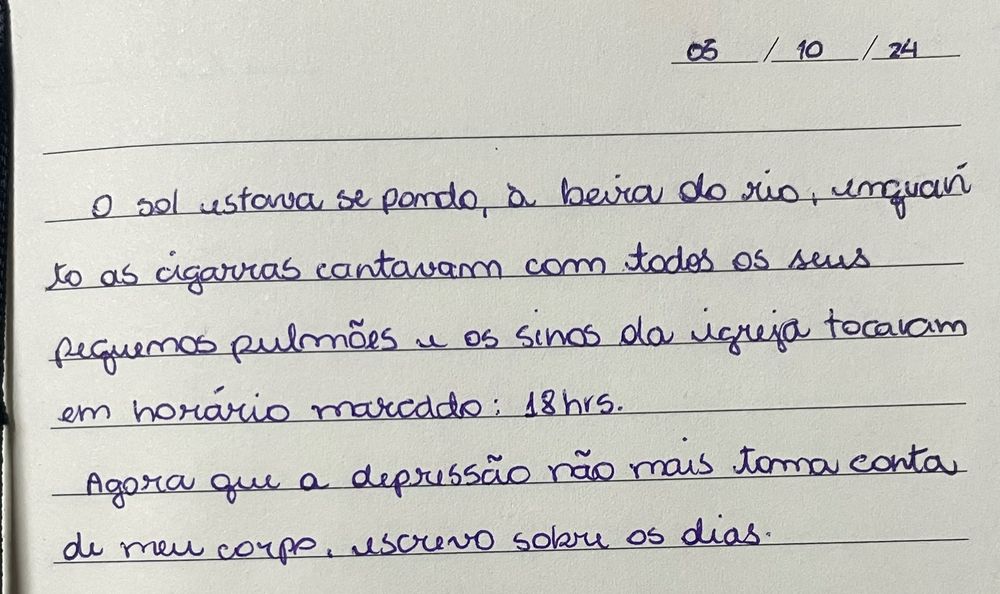 05 / 10 / 24
O sol estava se pondo, à beira do rio, enquan
to as cigarras cantavam com todos os seus
pequenos pulmões e os sinos da igreja tocavam
em horário marcado: 18hrs.
Agora que a depressão não mais toma conta
de meu corpo, escrevo sobre os dias.